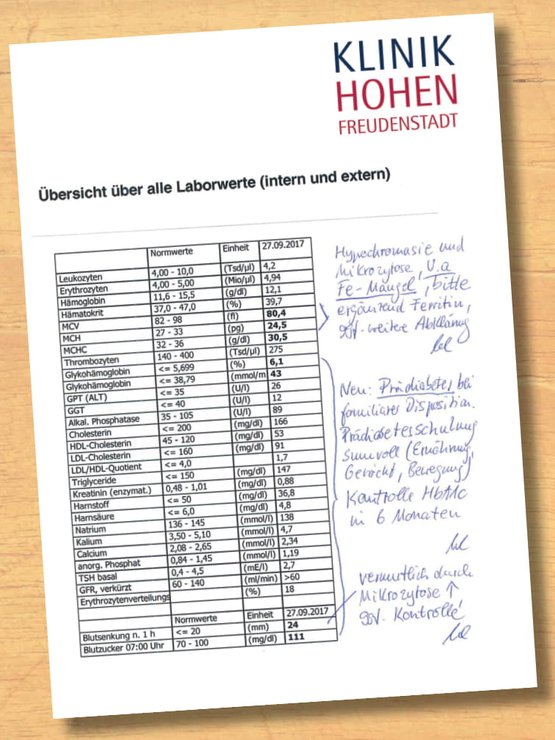 KLINIK
HOHEN
FREUDENSTADT
Übersicht über alle Laborwerte (intern und extern)
Normwerte Einheit 27.09.2017
Leukozyten 4,00 - 10,0 (Tsd/µl) 4,2
Erythrozyten 4,00 - 5,00 (Mio/µl) 4,94
Hämoglobin 11,6 - 15,5 (g/dl) 12,1
Hämatokrit 37,0 - 47,0 (%) 39,7
MCV 82 - 98 (fl) 80,4
MCH 27 - 33 (pg) 24,5
MCHC 32 - 36 (g/dl) 30,5
Thrombozyten 140 - 400 (Tsd/µl) 275
Glykohämoglobin <= 5,699 (%) 6,1
Glykohämoglobin <= 38,79 (mmol/m 43
GPT (ALT) <= 35 (U/l) 26
GGT <= 40 (U/l) 12
Alkal. Phosphatase 35 - 105 (U/l) 89
Cholesterin <= 200 (mg/dl) 166
HDL-Cholesterin 45 - 120 (mg/dl) 53
LDL-Cholesterin <= 160 (mg/dl) 91
LDL/HDL-Quotient <= 4,0 1,7
Triglyceride <= 150 (mg/dl) 147
Kreatinin (enzymat.) 0,48 - 1,01 (mg/dl) 0,88
Harnstoff <= 50 (mg/dl) 36,8
Harnsäure <= 6,0 (mg/dl) 4,8
Natrium 136 - 145 (mmol/l) 138
Kalium 3,50 - 5,10 (mmol/l) 4,7
Calcium 2,08 - 2,65 (mmol/l) 2,34
anorg. Phosphat 0,84 - 1,45 (mmol/l) 1,19
TSH basal 0,4 - 4,5 (mE/l) 2,7
GFR, verkürzt 60 - 140 (ml/min) >60
Erythrozytenverteilungs (%) 18
Normwerte Einheit 27.09.2017
Blutsenkung n. 1 h <= 20 (mm) 24
Blutzucker 07:00 Uhr 70 - 100 (mg/dl) 111
Hypochromasie und
Mikrozytose, V.a
Fe-Mangel, bitte
ergänzend Ferritin,
ggf. weitere Abklärung
Neu: Prädiabetes bei
familiärer Disposition.
Prädiabetesschulung
sinnvoll (Ernährung,
Gewicht, Bewegung)
Kontrolle HbA1c
in 6 Monaten
vermutlich durch
Mikrozytose ↑
ggf. Kontrolle